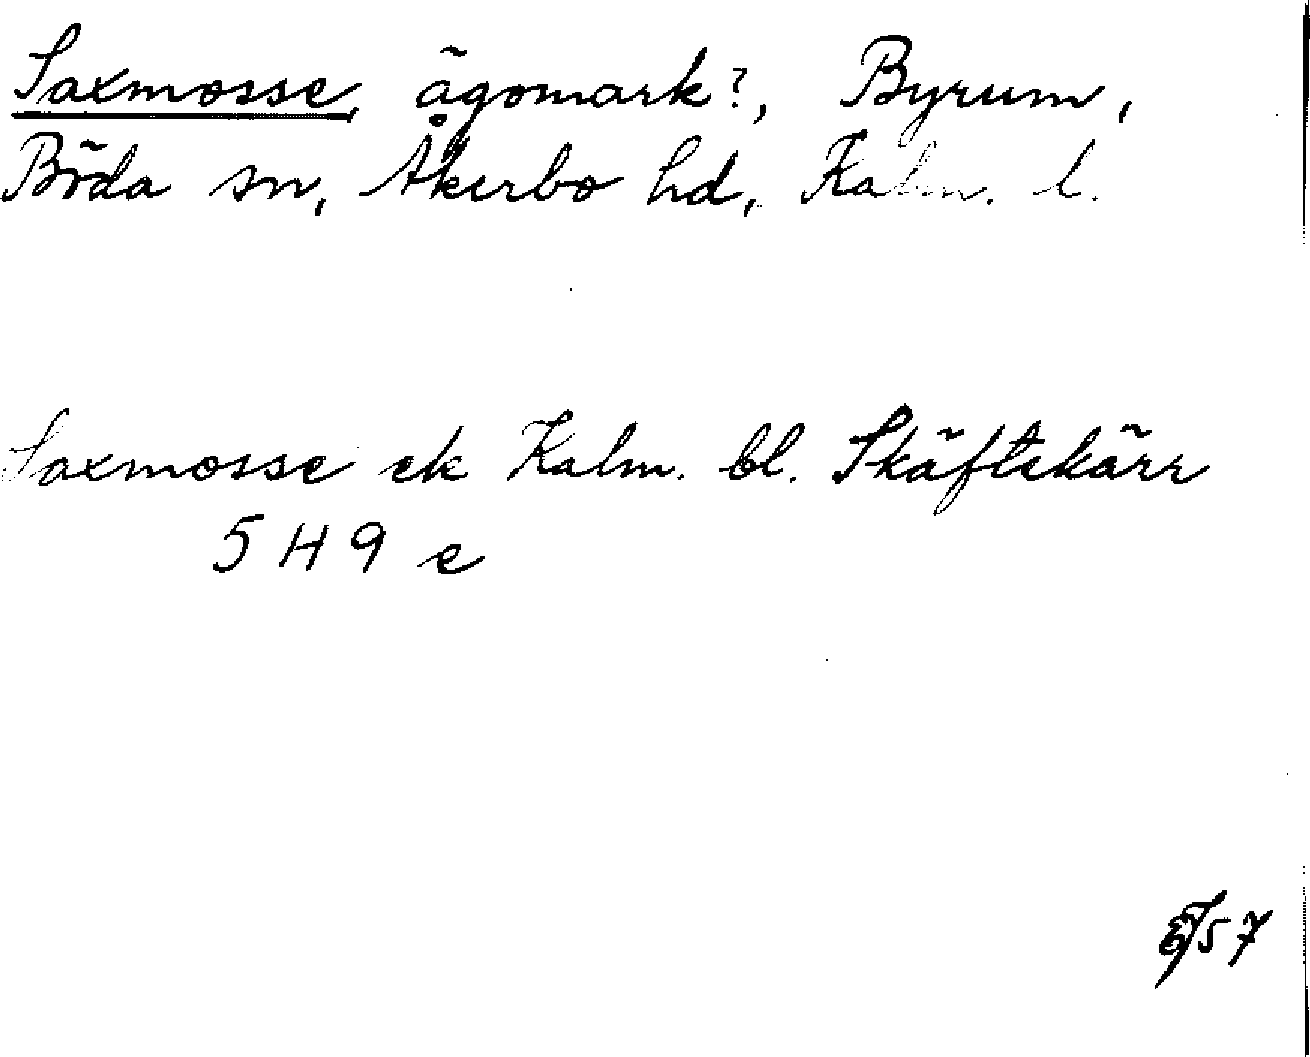 Saxmosse, ägomark?, Byrum,
Böda sn, Åkerbo hd, Kalm. l.
Saxmosse ek Kalm. bl. Skäftekärr
5 H 9 e